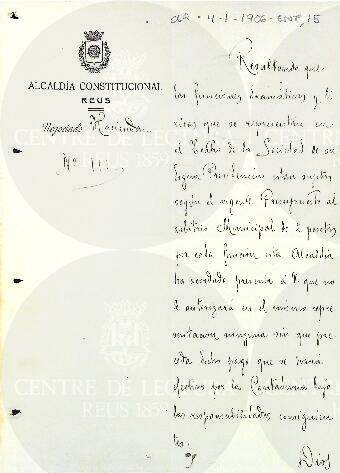 4-1-1906
ALCALDÍA CONSTITUCIONAL
REUS
Negociado Hacienda
Nº
Resultando que
las funciones dramáticas y lí
ricas que se representan en
el Teatro de la Sociedad de su
digna Presidencia están sujetas
según el vigente Presupuesto al
arbitrio Municipal de 2 pesetas
por cada función esta Alcaldía
ha acordado prevenir á V. que no
se autorizará en el mismo repre
sentación ninguna sin que pre
ceda dicho pago que se hará
efectivo por la Contaduría bajo
las responsabilidades consiguien
tes.
Dios
CENTRE DE LECTURA
REUS 1859
CENTRE DE LECTURA
REUS 1859